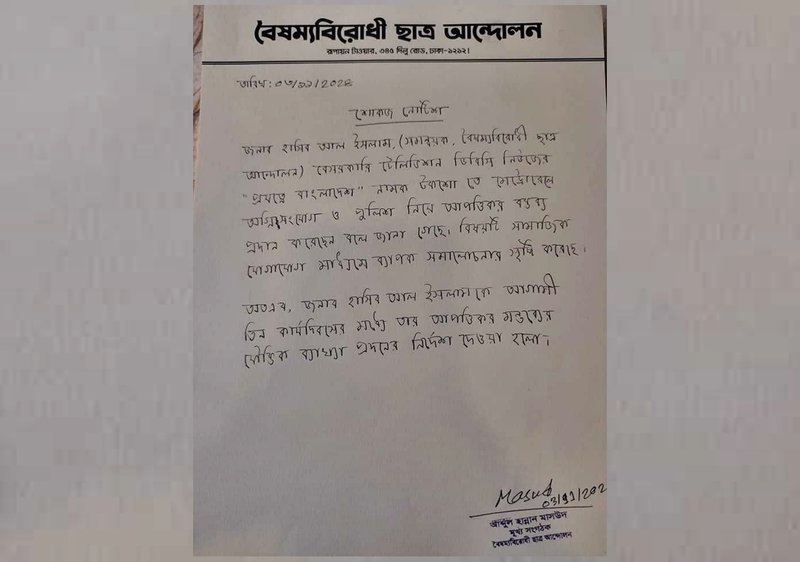 বৈষম্যবিরোধী ছাত্র আন্দোলন
রূপায়ন টাওয়ার, ৩৪৫ দিলু রোড, ঢাকা-১২১২।
তারিখ: ০৩/১১/২০২৪
শোকজ নোটিশ
জনাব হাসিব আল ইসলাম, (সমন্বয়ক, বৈষম্যবিরোধী ছাত্র
আন্দোলন) বেসরকারি টেলিভিশন ডিবিসি নিউজের
"প্রযত্নে বাংলাদেশ" নামক টকশো তে মেট্রোরেলে
অগ্নিসংযোগ ও পুলিশ নিয়ে আপত্তিকর বক্তব্য
প্রদান করেছেন বলে জানা গেছে। বিষয়টি সামাজিক
যোগাযোগ মাধ্যমে ব্যাপক সমালোচনার সৃষ্টি করেছে।
অতএব, জনাব হাসিব আল ইসলাম কে আগামী
তিন কার্যদিবসের মধ্যে তার আপত্তিকর মন্তব্যের
যৌক্তিক ব্যাখ্যা প্রদানের নির্দেশ দেওয়া হলো।
Masud
03/11/202
আব্দুল হান্নান মাসউদ
মুখ্য সংগঠক
বৈষম্যবিরোধী ছাত্র আন্দোলন